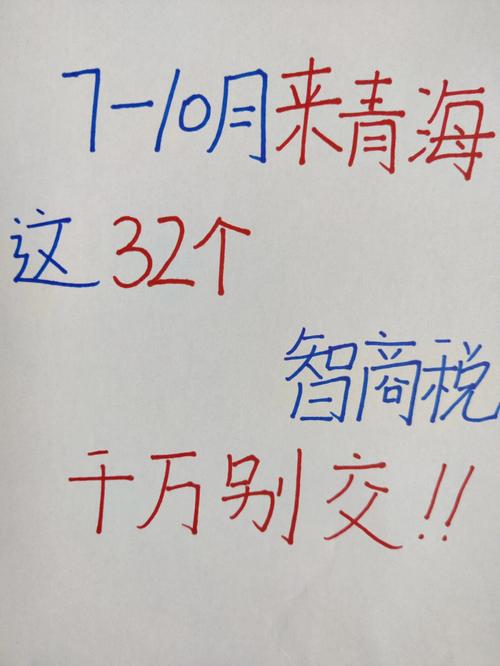 7-10月来青海
这32个
智商税
千万别交!!